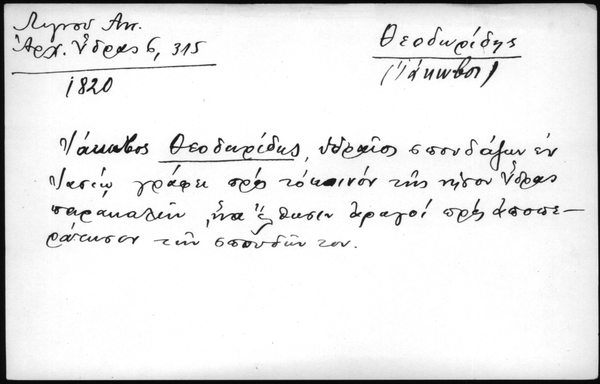 Λιγνοῦ Αν.
Ἀρχ. Ὕδρας 6, 315
1820
Θεοδωρίδης
(Ἰάκωβος)
Ἰάκωβος Θεοδωρίδης, ὑδραῖος σπουδάζων ἐν
Ἰασίῳ γράφει πρὸς τὸ κοινὸν τῆς νήσου Ὕδρας
παρακαλῶν ἵνα ἔλθωσιν ἀρωγοί πρὸς ἀποπε-
ράτωσιν τῶν σπουδῶν του.